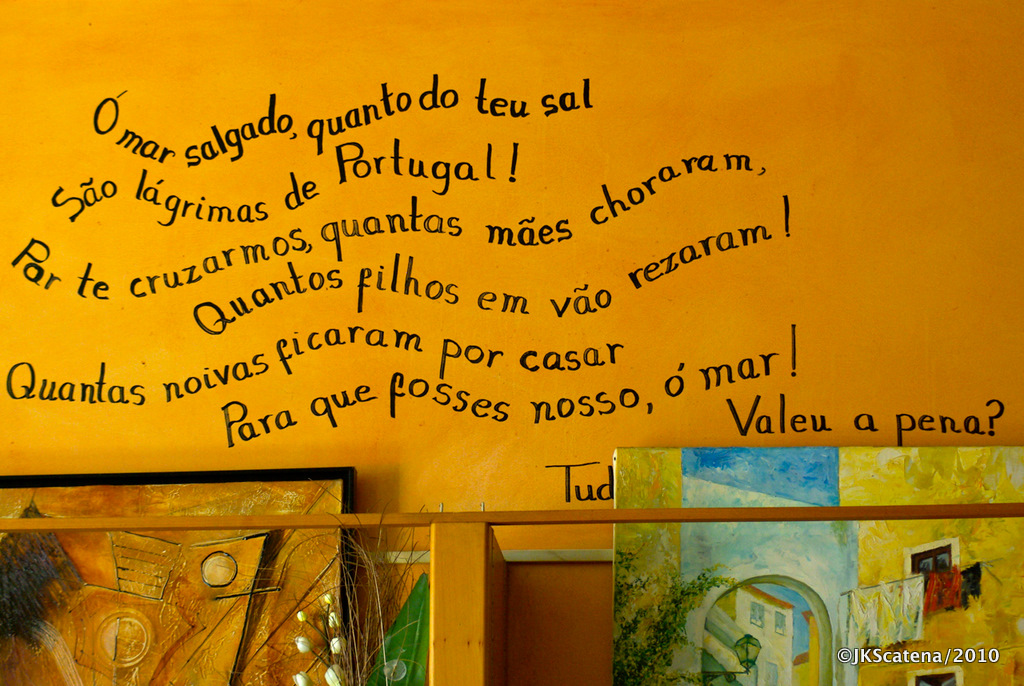 Ó mar salgado, quanto do teu sal
São lágrimas de Portugal!
Por te cruzarmos, quantas mães choraram,
Quantos filhos em vão rezaram!
Quantas noivas ficaram por casar
Para que fosses nosso, ó mar!
Valeu a pena?
Tud
©JKScatena/2010